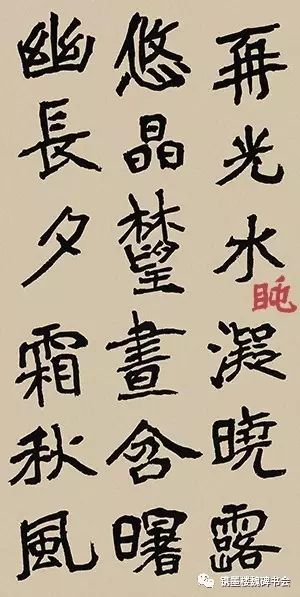 再光水凝曉露
盹
悠晶晝含曙
幽長夕霜秋風
墨楼魏碑书会